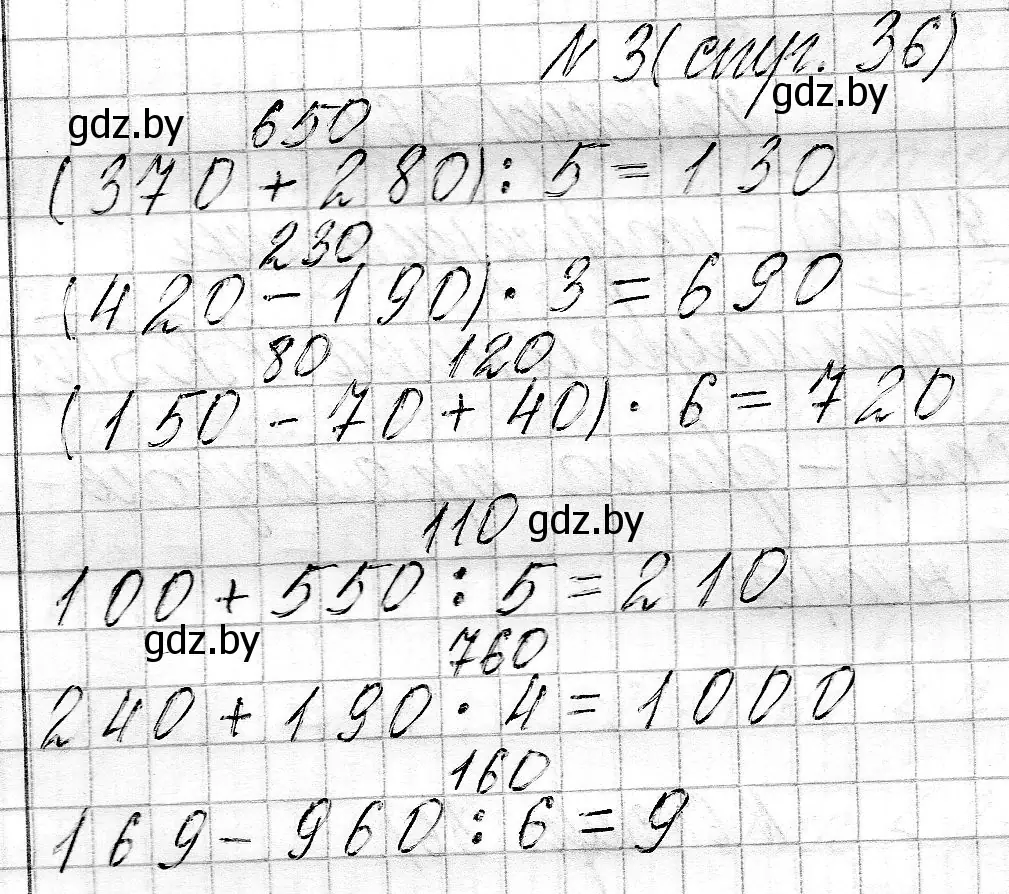 N 3 (стр. 36)
gdz.by
gdz.by 650
(370 + 280) : 5 = 130
230
(420 - 190) · 3 = 690
80 120
(150 - 70 + 40) · 6 = 720
110 gdz.by
100 + 550 : 5 = 210
gdz.by 760
240 + 190 · 4 = 1000
160
169 - 960 : 6 = 9